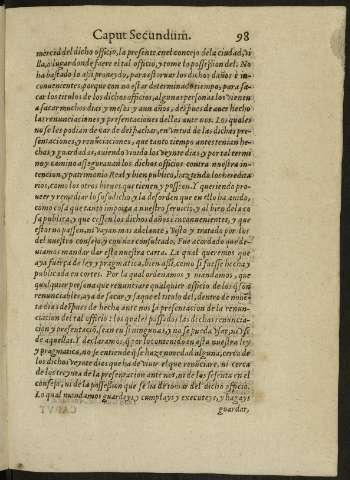 Caput Secundum. 98
merced del dicho officio, la presente en el concejo de la ciudad, vi
lla, o lugar donde fuere el tal officio, y tome la possession del. No
ha bastado lo assi proueydo, para estoruar los dichos daños e in-
conuenientes, porque con no estar determinado tiempo, para sa-
car los titulos de los dichos officios, algunas personas los vienen
a sacar muchos dias y meses y aun años, despues de auer hecho
las renunciaciones y presentaciones dellas ante nos. Los quales
no se les podian dexar de despachar, en virtud de las dichas pre-
sentaciones, y renũciaciones, que tanto tiempo antes tenian he-
chas y guardadas, auiendo viuido los veynte dias, y por tal termi
no y camino assegurauan los dichos officios contra nuestra in-
tencion, y patrimonio Real y bien publico, haziendo los heredita
rios, como los otros bienes que tienen y posseen. Y queriendo pro-
ueer y remediar lo susodicho, y la desorden que en ello ha auido,
como cosa que tanto importa a nuestro seruicio, y al bien de la co
sa publica, y que cessen los dichos daños e inconuenientes, y que
estos no passen, ni vayan mas adelante, visto y tratado por los
del nuestro consejo, y con nos consultado. Fue acordado que de-
uiamos mandar dar esta nuestra carta. La qual queremos que
aya fuerça de ley y pragmatica, bien assi, como si fuesse hecha y
publicada en cortes. Por la qual ordenamos y mandamos, que
qualquier persona que renunciare qualquier officio de los q̃ son
renunciables, aya de sacar, y saque el titulo del, dentro de nouẽ-
ta dias despues de hecha ante nos la presentacion de la renun-
ciacion del tal officio: los quales passados las dichas renuncia-
cion y presentaciõ, sean en si ningunas, y no se pueda vsar, ni vse
de aquellas. Y declaramos, q̃ por lo contenido en esta nuestra ley
y pragmatica, no se entiende q̃ se haze nouedad alguna, cerca de
los dichos veynte dias que ha de viuir el que renunciare, ni cerca
de los treynta de la presentacion ante nos, ni de los sesenta en el
consejo, ni de la possession que se ha de tomar del dicho officio.
Lo qual mandamos guardeys, y cumplays y executeys, y hagays
guardar,